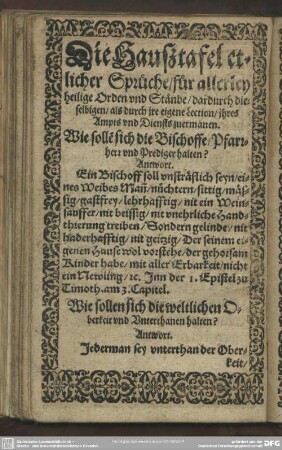 Die Haußtafel et-
licher Sprüche/ für allerley
heilige Orden vnd Stände/ dardurch die-
selbigen/ als durch jre eigene lection/ jhres
Ampts vnd Diensts zuermanen.
Wie sollē sich die Bischoffe/ Pfarr-
herr vnd Prediger halten?
Antwort.
Ein Bischoff soll vnsträflich seyn/ ei-
nes Weibes Mañ/ nüchtern/ sittig/ mäs-
sig/ gastfrey/ lehrhafftig/ nit ein Wein-
sauffer/ nit beissig/ nit vnehrliche Hand-
thierung treiben/ Sondern gelinde/ nit
haderhafftig/ nit geitzig/ Der seinem ei-
genen Hause wol vorstehe/ der gehorsam
Kinder habe/ mit aller Erbarkeit/ nicht
ein Newling/ ꝛc. Inn der 1. Epistel zu
Timoth. am 3. Capitel.
Wie sollen sich die weltlichen O-
berkeit vnd Vnterthanen halten?
Antwort.
Jederman sey vnterthan der Ober-
keit/
DFG